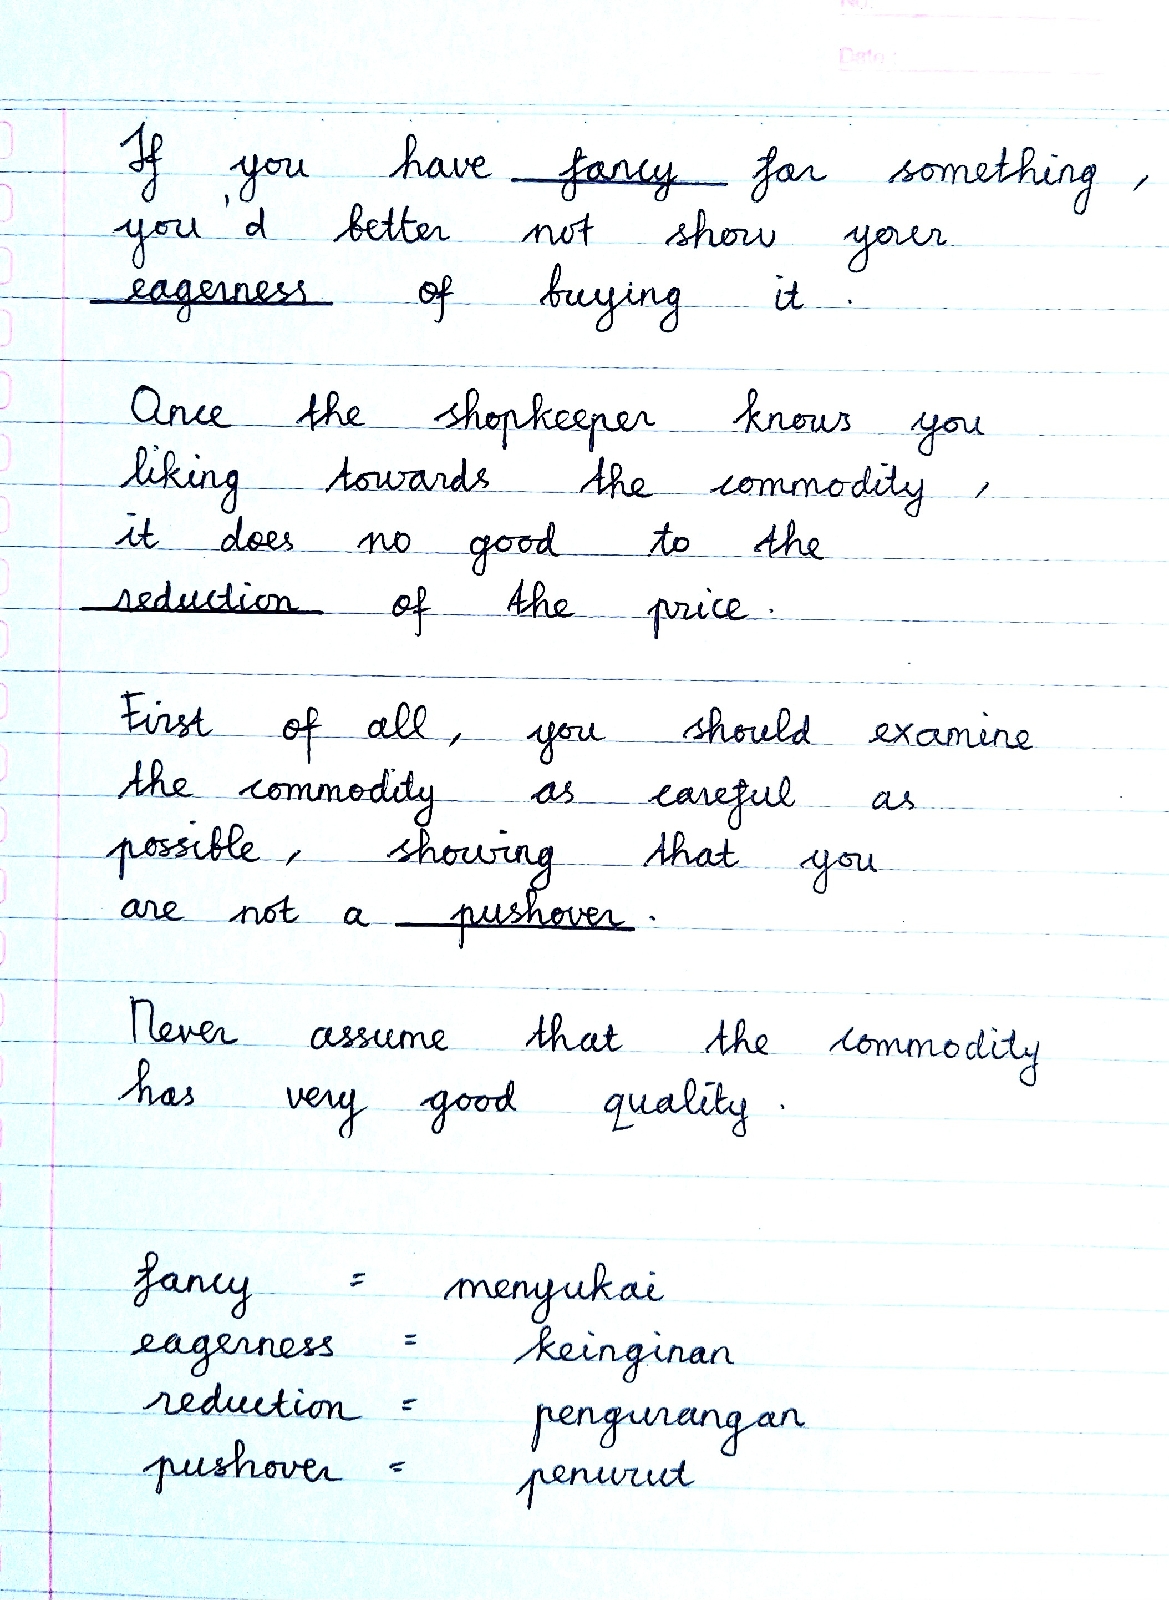 No.
Date :
If you have fancy for something,
you'd better not show your
eagerness of buying it.
Once the shopkeeper knows you
liking towards the commodity,
it does no good to the
reduction of the price.
First of all, you should examine
the commodity as careful as
possible, showing that you
are not a pushover.
Never assume that the commodity
has very good quality.
fancy = menyukai
eagerness = keinginan
reduction = pengurangan
pushover = penurut